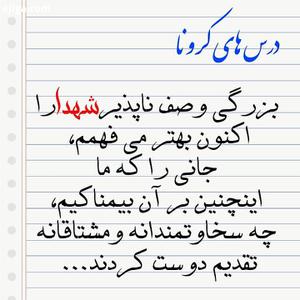 درس های کرونا
بزرگی وصف ناپذیر شهدا را
اکنون بهتر می فهمم،
جانی را که ما
اینچنین بر آن بیمناکیم،
چه سخاوتمندانه و مشتاقانه
تقدیم دوست کردند...